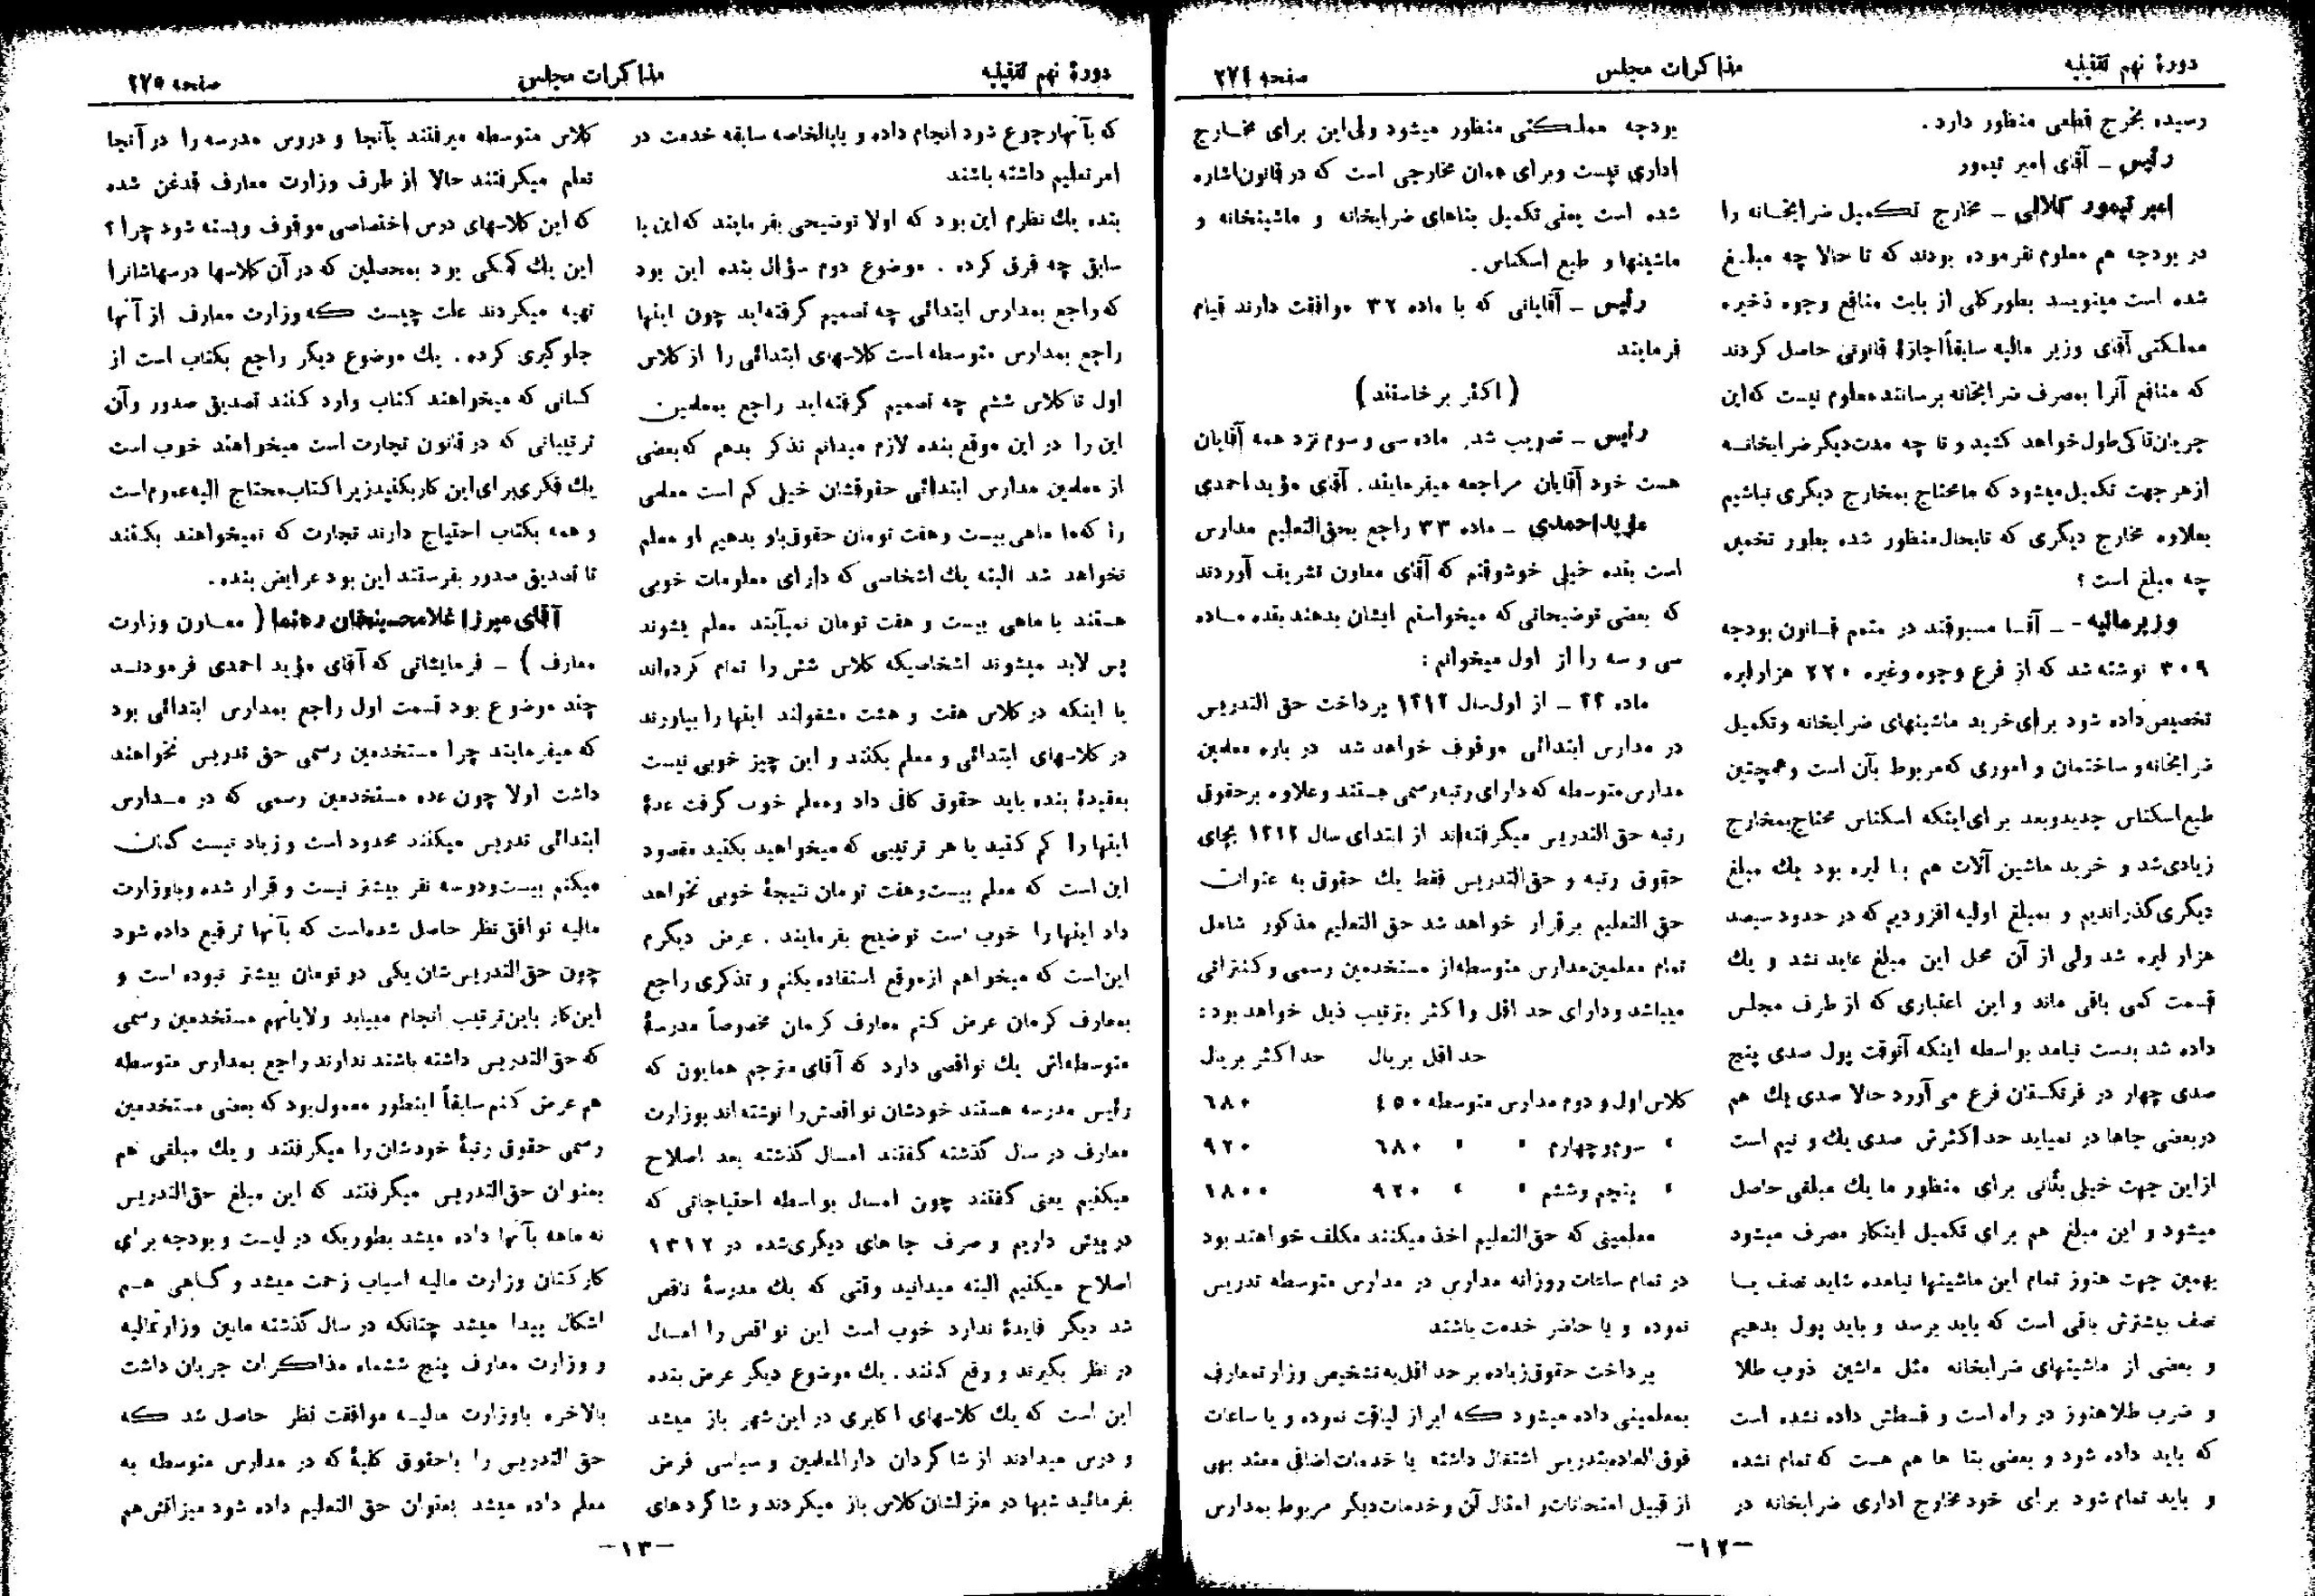 دورهٔ نهم تقنینیه
مذاکرات مجلس
صفحه ۲۷۴
رسیده بخرج قطعی منظور دارد.
رئیس ـ آقای امیر تیمور
امیر تیمور کلالی ـ مخارج تکمیل ضرابخانه را
در بودجه هم معلوم نفرموده بودند که تا حالا چه مبلغ
شده است مینویسد بطور کلی از بابت منافع وجوه ذخیره
مملکتی آقای وزیر مالیه سابقاً اجازهٔ قانونی حاصل کردند
که منافع آنرا بمصرف ضرابخانه برسانند معلوم نیست که این
جریان تا کی طول خواهد کشید و تا چه مدت دیگر ضرابخانه
از هر جهت تکمیل میشود که ما محتاج بمخارج دیگری نباشیم
بعلاوه مخارج دیگری که تابحال منظور شده بطور تخمین
چه مبلغ است ؟
وزیر مالیه - ـ آقا مسبوقند در متمم قانون بودجه
۳۰۹ نوشته شد که از فرع وجوه وغیره ۲۲۰ هزار لیره
تخصیص داده شود برای خرید ماشینهای ضرابخانه و تکمیل
ضرابخانه و ساختمان و اموری که مربوط بآن است و همچنین
طبع اسکناس جدید و بعد برای اینکه اسکناس محتاج بمخارج
زیادی شد و خرید ماشین آلات هم با لیره بود یك مبلغ
دیگری گذراندیم و بمبلغ اولیه افزودیم که در حدود سیصد
هزار لیره شد ولی از آن محل این مبلغ عاید نشد و یك
قسمت کمی باقی ماند و این اعتباری که از طرف مجلس
داده شد بدست نیامد بواسطه اینکه آنوقت پول صدی پنج
صدی چهار در فرنگستان فرع می آورد حالا صدی یك هم
در بعضی جاها در نمیاید حد اکثرش صدی یك و نیم است
از این جهت خیلی بتأنی برای منظور ما یك مبلغی حاصل
میشود و این مبلغ هم برای تکمیل اینکار مصرف میشود
بهمین جهت هنوز تمام این ماشینها نیامده شاید نصف یا
نصف بیشترش باقی است که باید برسد و باید پول بدهیم
و بعضی از ماشینهای ضرابخانه مثل ماشین ذوب طلا
و ضرب طلا هنوز در راه است و قسطش داده نشده است
که باید داده شود و بعضی بنا ها هم هست که تمام نشده
و باید تمام شود برای خود مخارج اداری ضرابخانه در
بودجه مملکتی منظور میشود ولی این برای مخارج
اداری نیست و برای همان مخارجی است که در قانون اشاره
شده است یعنی تکمیل بناهای ضرابخانه و ماشینخانه و
ماشینها و طبع اسکناس.
رئیس ـ آقایانی که با ماده ۳۲ موافقت دارند قیام
فرمایند
(اکثر برخاستند)
رئیس ـ تصویب شد. ماده سی و سوم نزد همه آقایان
هست خود آقایان مراجعه میفرمایند. آقای مؤید احمدی
مؤید احمدی ـ ماده ۳۳ راجع بحق التعلیم مدارس
است بنده خیلی خوشوقتم که آقای معاون تشریف آوردند
که بعضی توضیحاتی که میخواستم ایشان بدهند بنده ماده
سی و سه را از اول میخوانم :
ماده ۳۳ ـ از اول سال ۱۳۱۲ پرداخت حق التدریس
در مدارس ابتدائی موقوف خواهد شد در باره معلمین
مدارس متوسطه که دارای رتبه رسمی هستند و علاوه بر حقوق
رتبه حق التدریس میگرفته اند از ابتدای سال ۱۳۱۲ بجای
حقوق رتبه و حق التدریس فقط یك حقوق به عنوان
حق التعلیم برقرار خواهد شد حق التعلیم مذکور شامل
تمام معلمین مدارس متوسطه از مستخدمین رسمی و کنتراتی
میباشد و دارای حد اقل و اکثر بترتیب ذیل خواهد بود :
حد اقل بریال حد اکثر بریال
کلاس اول و دوم مدارس متوسطه ۴۵۰ ۶۸۰
» سوم و چهارم » » ۶۸۰ ۹۲۰
» پنجم و ششم » » ۹۲۰ ۱۸۰۰
معلمینی که حق التعلیم اخذ میکنند مکلف خواهند بود
در تمام ساعات روزانه مدارس در مدارس متوسطه تدریس
نموده و یا حاضر خدمت باشند
پرداخت حقوق زیاده بر حد اقل به تشخیص وزارت معارف
بمعلمینی داده میشود که ابراز لیاقت نموده و یا ساعات
فوق العاده بتدریس اشتغال داشته یا خدمات اضافی معتد بهی
از قبیل امتحانات و امثال آن و خدمات دیگر مربوط بمدارس
ـ۱۲ـ
دورهٔ نهم تقنینیه
مذاکرات مجلس
صفحه ۲۷۵
که بآنها رجوع شود انجام داده و یا بالخاصه سابقه خدمت در
امر تعلیم داشته باشند
بنده یك نظرم این بود که اولا توضیحی بفرمایند که این با
سابق چه فرق کرده. موضوع دوم سؤال بنده این بود
که راجع بمدارس ابتدائی چه تصمیم گرفته اید چون اینها
راجع بمدارس متوسطه است کلاسهای ابتدائی را از کلاس
اول تا کلاس ششم چه تصمیم گرفته اید راجع بمعلمین
این را در این موقع بنده لازم میدانم تذکر بدهم که بعضی
از معلمین مدارس ابتدائی حقوقشان خیلی کم است معلمی
را که ما ماهی بیست و هفت تومان حقوق باو بدهیم او معلم
نخواهد شد البته یك اشخاصی که دارای معلومات خوبی
هستند با ماهی بیست و هفت تومان نمیآیند معلم بشوند
پس لابد میشوند اشخاصیکه کلاس شش را تمام کرده اند
یا اینکه در کلاس هفت و هشت مشغولند اینها را بیاورند
در کلاسهای ابتدائی و معلم بکنند و این چیز خوبی نیست
بعقیدهٔ بنده باید حقوق کافی داد و معلم خوب گرفت عدهٔ
اینها را کم کنید یا هر ترتیبی که میخواهید بکنید مقصود
این است که معلم بیست و هفت تومان نتیجهٔ خوبی نخواهد
داد اینها را خوب است توضیح بفرمایند. عرض دیگرم
این است که میخواهم از موقع استفاده بکنم و تذکری راجع
بمعارف کرمان عرض کنم معارف کرمان مخصوصاً مدرسهٔ
متوسطه اش یك نواقصی دارد که آقای مترجم همایون که
رئیس مدرسه هستند خودشان نواقصش را نوشته اند بوزارت
معارف در سال گذشته گفتند امسال گذشته بعد اصلاح
میکنیم یعنی گفتند چون امسال بواسطه احتیاجاتی که
در پیش داریم و صرف جا های دیگری شده در ۱۳۱۲
اصلاح میکنیم البته میدانید وقتی که یك مدرسهٔ ناقص
شد دیگر فایدهٔ ندارد خوب است این نواقص را امسال
در نظر بگیرند و رفع کنند. یك موضوع دیگر عرض بنده
این است که یك کلاسهای اکابری در این شهر باز میشد
و درس میدادند از شاگردان دارالمعلمین و سیاسی فرض
بفرمائید شبها در منزلشان کلاس باز میکردند و شاگردهای
کلاس متوسطه میرفتند بآنجا و دروس مدرسه را در آنجا
تعلم میکرفتند حالا از طرف وزارت معارف قدغن شده
که این کلاسهای درس اختصاصی موقوف و بسته شود چرا ؟
این یك کمکی بود بمحصلین که در آن کلاسها درسهاشانرا
تهیه میکردند علت چیست که وزارت معارف از آنها
جلوگیری کرده. یك موضوع دیگر راجع بکتاب است از
کسانی که میخواهند کتاب وارد کنند تصدیق صدور و آن
ترتیباتی که در قانون تجارت است میخواهند خوب است
یك فکری برای این کار بکنید زیرا کتاب محتاج الیه عموم است
و همه بکتاب احتیاج دارند تجارت که نمیخواهند بکنند
تا تصدیق صدور بفرستند این بود عرایض بنده.
آقای میرزا غلامحسینخان رهنما (معاون وزارت
معارف) ـ فرمایشاتی که آقای مؤید احمدی فرمودند
چند موضوع بود قسمت اول راجع بمدارس ابتدائی بود
که میفرمایند چرا مستخدمین رسمی حق تدریس نخواهند
داشت اولا چون عده مستخدمین رسمی که در مدارس
ابتدائی تدریس میکنند محدود است و زیاد نیست گمان
میکنم بیست و دو سه نفر بیشتر نیست و قرار شده و با وزارت
مالیه توافق نظر حاصل شده است که بآنها ترفیع داده شود
چون حق التدریس شان یکی دو تومان بیشتر نبوده است و
این کار باین ترتیب انجام مییابد و لایاتهم مستخدمین رسمی
که حق التدریس داشته باشند ندارند راجع بمدارس متوسطه
هم عرض کنم سابقاً اینطور معمول بود که بعضی مستخدمین
رسمی حقوق رتبهٔ خودشان را میگرفتند و یك مبلغی هم
بعنوان حق التدریس میگرفتند که این مبلغ حق التدریس
نه ماهه بآنها داده میشد بطوریکه در لیست و بودجه برای
کارکنان وزارت مالیه اسباب زحمت میشد و گاهی هم
اشکال پیدا میشد چنانکه در سال گذشته مابین وزارتمالیه
و وزارت معارف پنج ششماه مذاکرات جریان داشت
بالاخره با وزارت مالیه موافقت نظر حاصل شد که
حق التدریس را با حقوق کلیهٔ که در مدارس متوسطه به
معلم داده میشد بعنوان حق التعلیم داده شود میزانش هم
ـ۱۳ـ